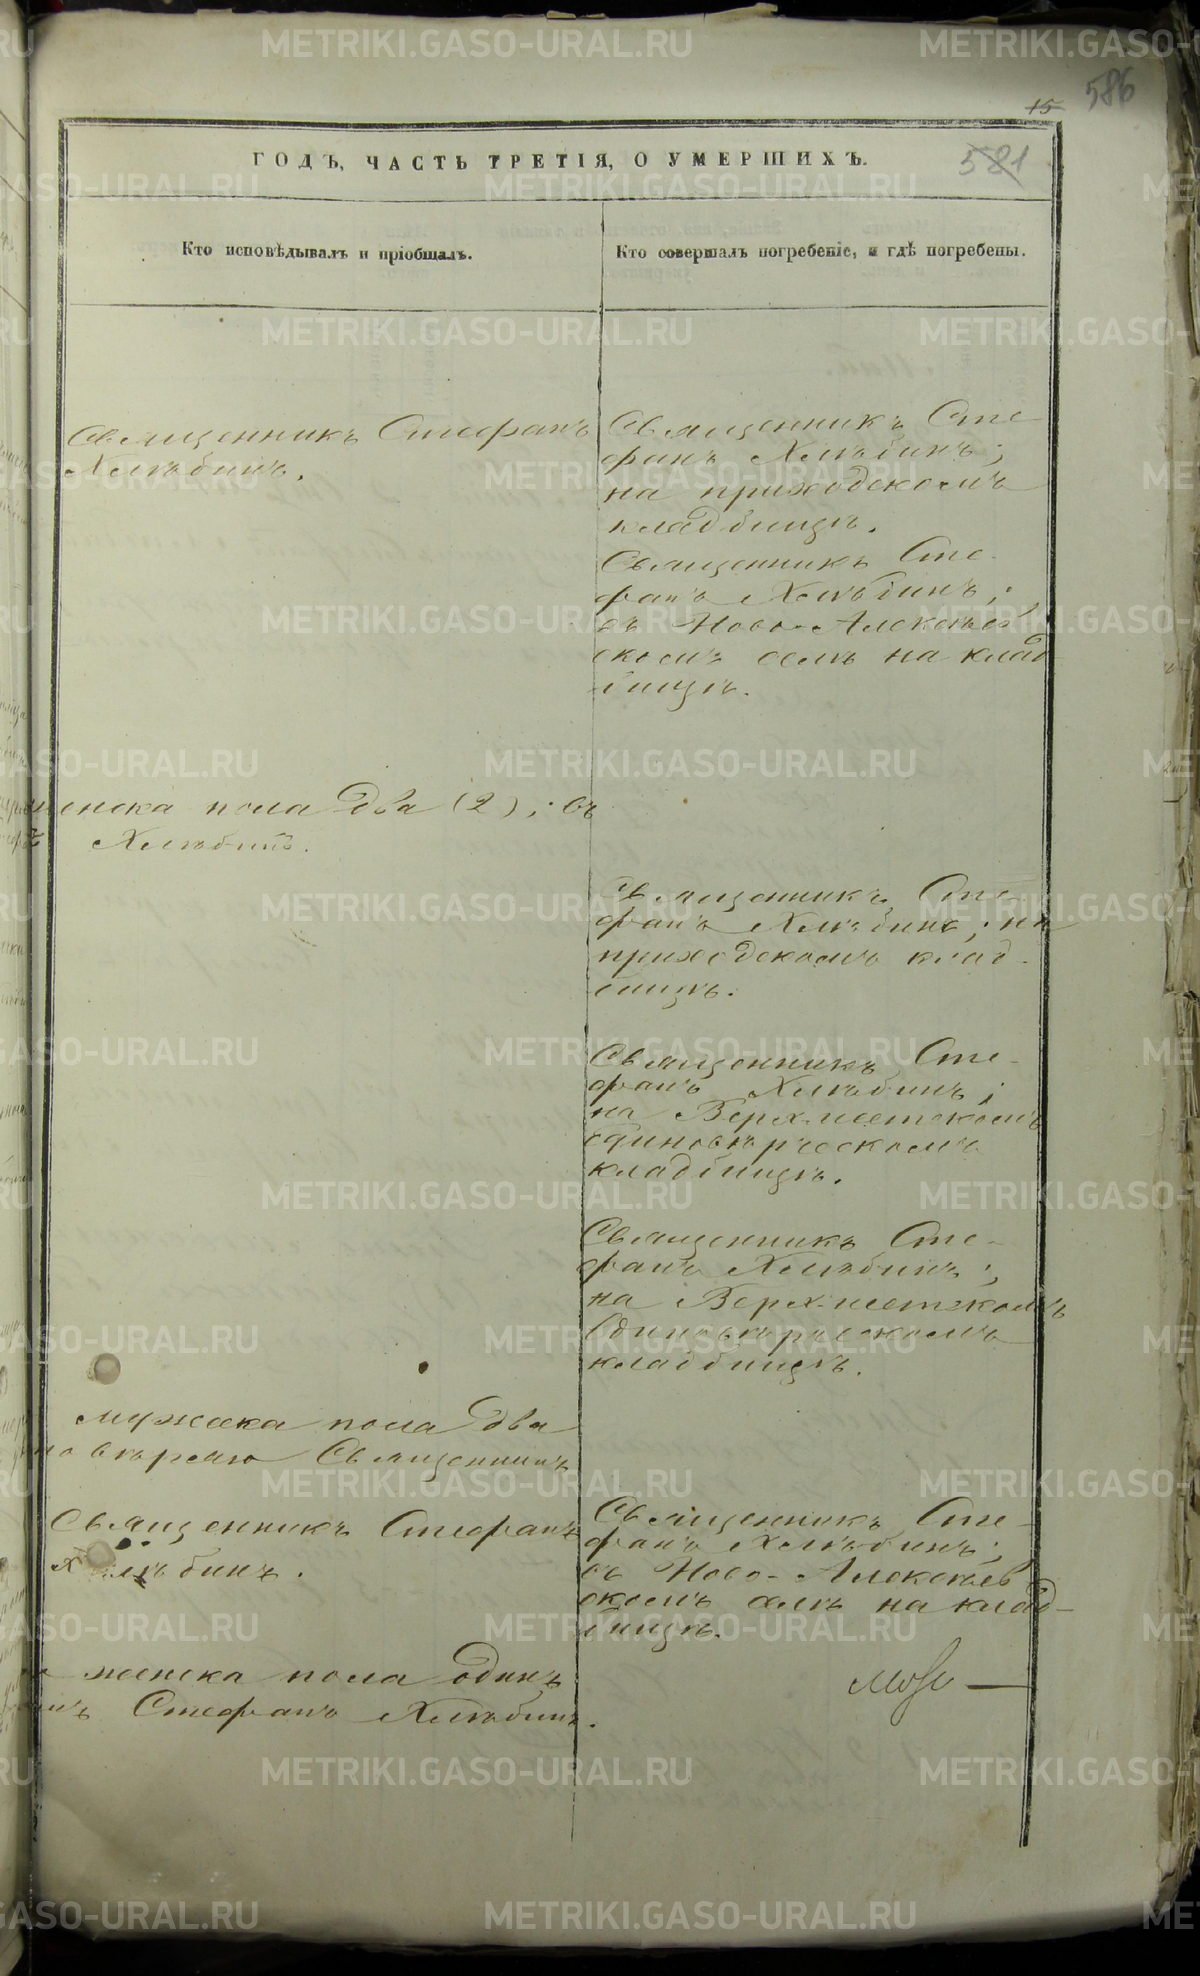 586
15
581
ГОДЪ, ЧАСТЬ ТРЕТІЯ, О УМЕРШИХЪ.
Кто исповѣдывалъ и пріобщалъ.
Кто совершалъ погребеніе, и гдѣ погребены.
Священникъ Стефанъ
Хлѣбинъ.
Священникъ Сте-
фанъ Хлѣбинъ;
на приходскомъ
кладбищѣ.
Священникъ Сте-
фанъ Хлѣбинъ;
въ Ново-Алексѣев
скомъ селѣ на клад
бищѣ.
женска пола два (2); въ
Хлѣбинъ.
Священникъ Сте-
фанъ Хлѣбинъ; на
приходскомъ клад-
бищѣ.
Священникъ Сте-
фанъ Хлѣбинъ;
на Верх-исетскомъ
единовѣрческомъ
кладбищѣ.
Священникъ Сте-
фанъ Хлѣбинъ;
на Верх-исетскомъ
единовѣрческомъ
кладбищѣ.
мужеска пола два
Священникъ
Священникъ Стефанъ
Хлѣбинъ.
Священникъ Сте-
фанъ Хлѣбинъ;
въ Ново-Алексѣев
скомъ селѣ на клад-
бищѣ.
женска пола одинъ
Стефанъ Хлѣбинъ.
METRIKI.GASO-URAL.RU